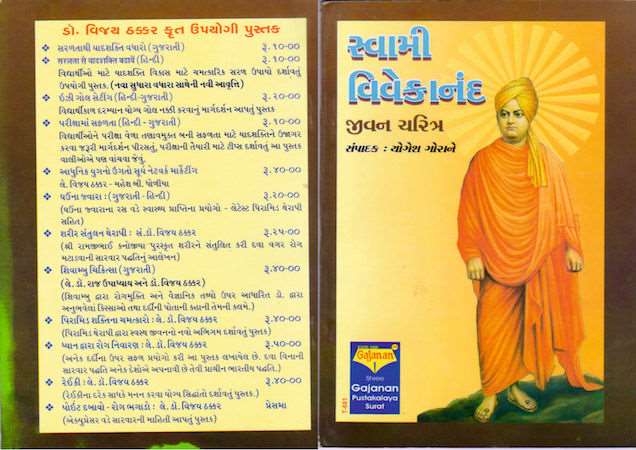 ડો. વિજય ઠક્કર કૃત ઉપયોગી પુસ્તક
❖ સરળતાથી યાદશક્તિ વધારો (ગુજરાતી) રૂ. ૧૦-૦૦
❖ सरलता से यादशक्ति बढायें (હિન્દી) રૂ. ૧૦-૦૦
વિદ્યાર્થીઓ માટે યાદશક્તિ વિકાસ માટે ચમત્કારિક સરળ ઉપાયો દર્શાવતું
ઉપયોગી પુસ્તક. (નવા સુધારા વધારા સાથેની નવી આવૃત્તિ)
❖ ઈઝી ગોલ સેટીંગ (હિન્દી-ગુજરાતી) રૂ. ૨૦-૦૦
વિદ્યાર્થીકાળ દરમ્યાન યોગ્ય ગોલ નક્કી કરવાનું માર્ગદર્શન આપતું પુસ્તક
❖ પરીક્ષામાં સફળતા (હિન્દી-ગુજરાતી) રૂ. ૧૦-૦૦
વિદ્યાર્થીઓને પરીક્ષા વેળા તણાવમુક્ત બની સફળતા માટે યાદશક્તિને ઉજાગર
કરવા જરૂરી માર્ગદર્શન પીરસતું, પરીક્ષાની તૈયારી માટે ટીપ્સ દર્શાવતું આ પુસ્તક
વાલીઓએ પણ વાંચવા જેવું.
❖ આધુનિક યુગનો ઉગતો સૂર્ય નેટવર્ક માર્કેટીંગ રૂ. ૪૦-૦૦
લે. વિજય ઠક્કર - મહેશ બી. પોળીયા
❖ ઘઉંના જવારા : (ગુજરાતી - હિન્દી) રૂ. ૨૦-૦૦
(ઘઉંના જવારાના રસ વડે સ્વાસ્થ્ય પ્રાપ્તિના પ્રયોગો - લેટેસ્ટ પિરામિડ થેરાપી
સહિત)
❖ શરીર સંતુલન થેરાપી : સં.ડો. વિજય ઠક્કર રૂ. ૨૫-૦૦
(શ્રી રામજીભાઈ કનોજીયા પુરસ્કૃત શરીરને સંતુલિત કરી દવા વગર રોગ
મટાડવાની સારવાર પદ્ધતિનું આલેખન)
❖ શિવામ્બુ ચિકિત્સા (ગુજરાતી) રૂ. ૪૦-૦૦
(લે. ડો. રાજ ઉપાધ્યાય અને ડો. વિજય ઠક્કર)
(શિવામ્બુ દ્વારા રોગમુક્તિ અને વૈજ્ઞાનિક તથ્યો ઉપર આધારિત ડો. દ્વારા
અનુભવેલાં કિસ્સાઓ તથા દર્દીની પોતાની કથની તેમની કલમે..)
❖ પિરામિડ શક્તિના ચમત્કારો : લે. ડો. વિજય ઠક્કર રૂ. ૪૦-૦૦
(પિરામિડ થેરાપી દ્વારા સ્વસ્થ જીવનનો નવો અભિગમ દર્શાવતું પુસ્તક)
❖ ધ્યાન દ્વારા રોગ નિવારણ : લે. ડો. વિજય ઠક્કર રૂ. ૫૦-૦૦
(અનેક દર્દીના ઉપર સફળ પ્રયોગો કરી આ પુસ્તક લખાયેલ છે. દવા વિનાની
સારવાર પદ્ધતિ અનેક દેશોએ અપનાવી છે તેવી પ્રાચીન ભારતીય પદ્ધતિ.)
❖ રેઈકી : લે. ડો. વિજય ઠક્કર રૂ. ૪૦-૦૦
(રેઈકીના દરેક સાધકે મનન કરવા યોગ્ય સિદ્ધાંતો દર્શાવતું પુસ્તક.)
❖ પોઈંટ દબાવો - રોગ ભગાડો : લે. ડો. વિજય ઠક્કર પ્રેસમાં
(એક્યુપ્રેસર વડે સારવારની માહિતી આપતું પુસ્તક)
સ્વામી
વિવેકાનંદ
જીવન ચરિત્ર
સંપાદક : યોગેશ ગોરાને
Gajanan
Shree
Gajanan
Pustakalaya
Surat